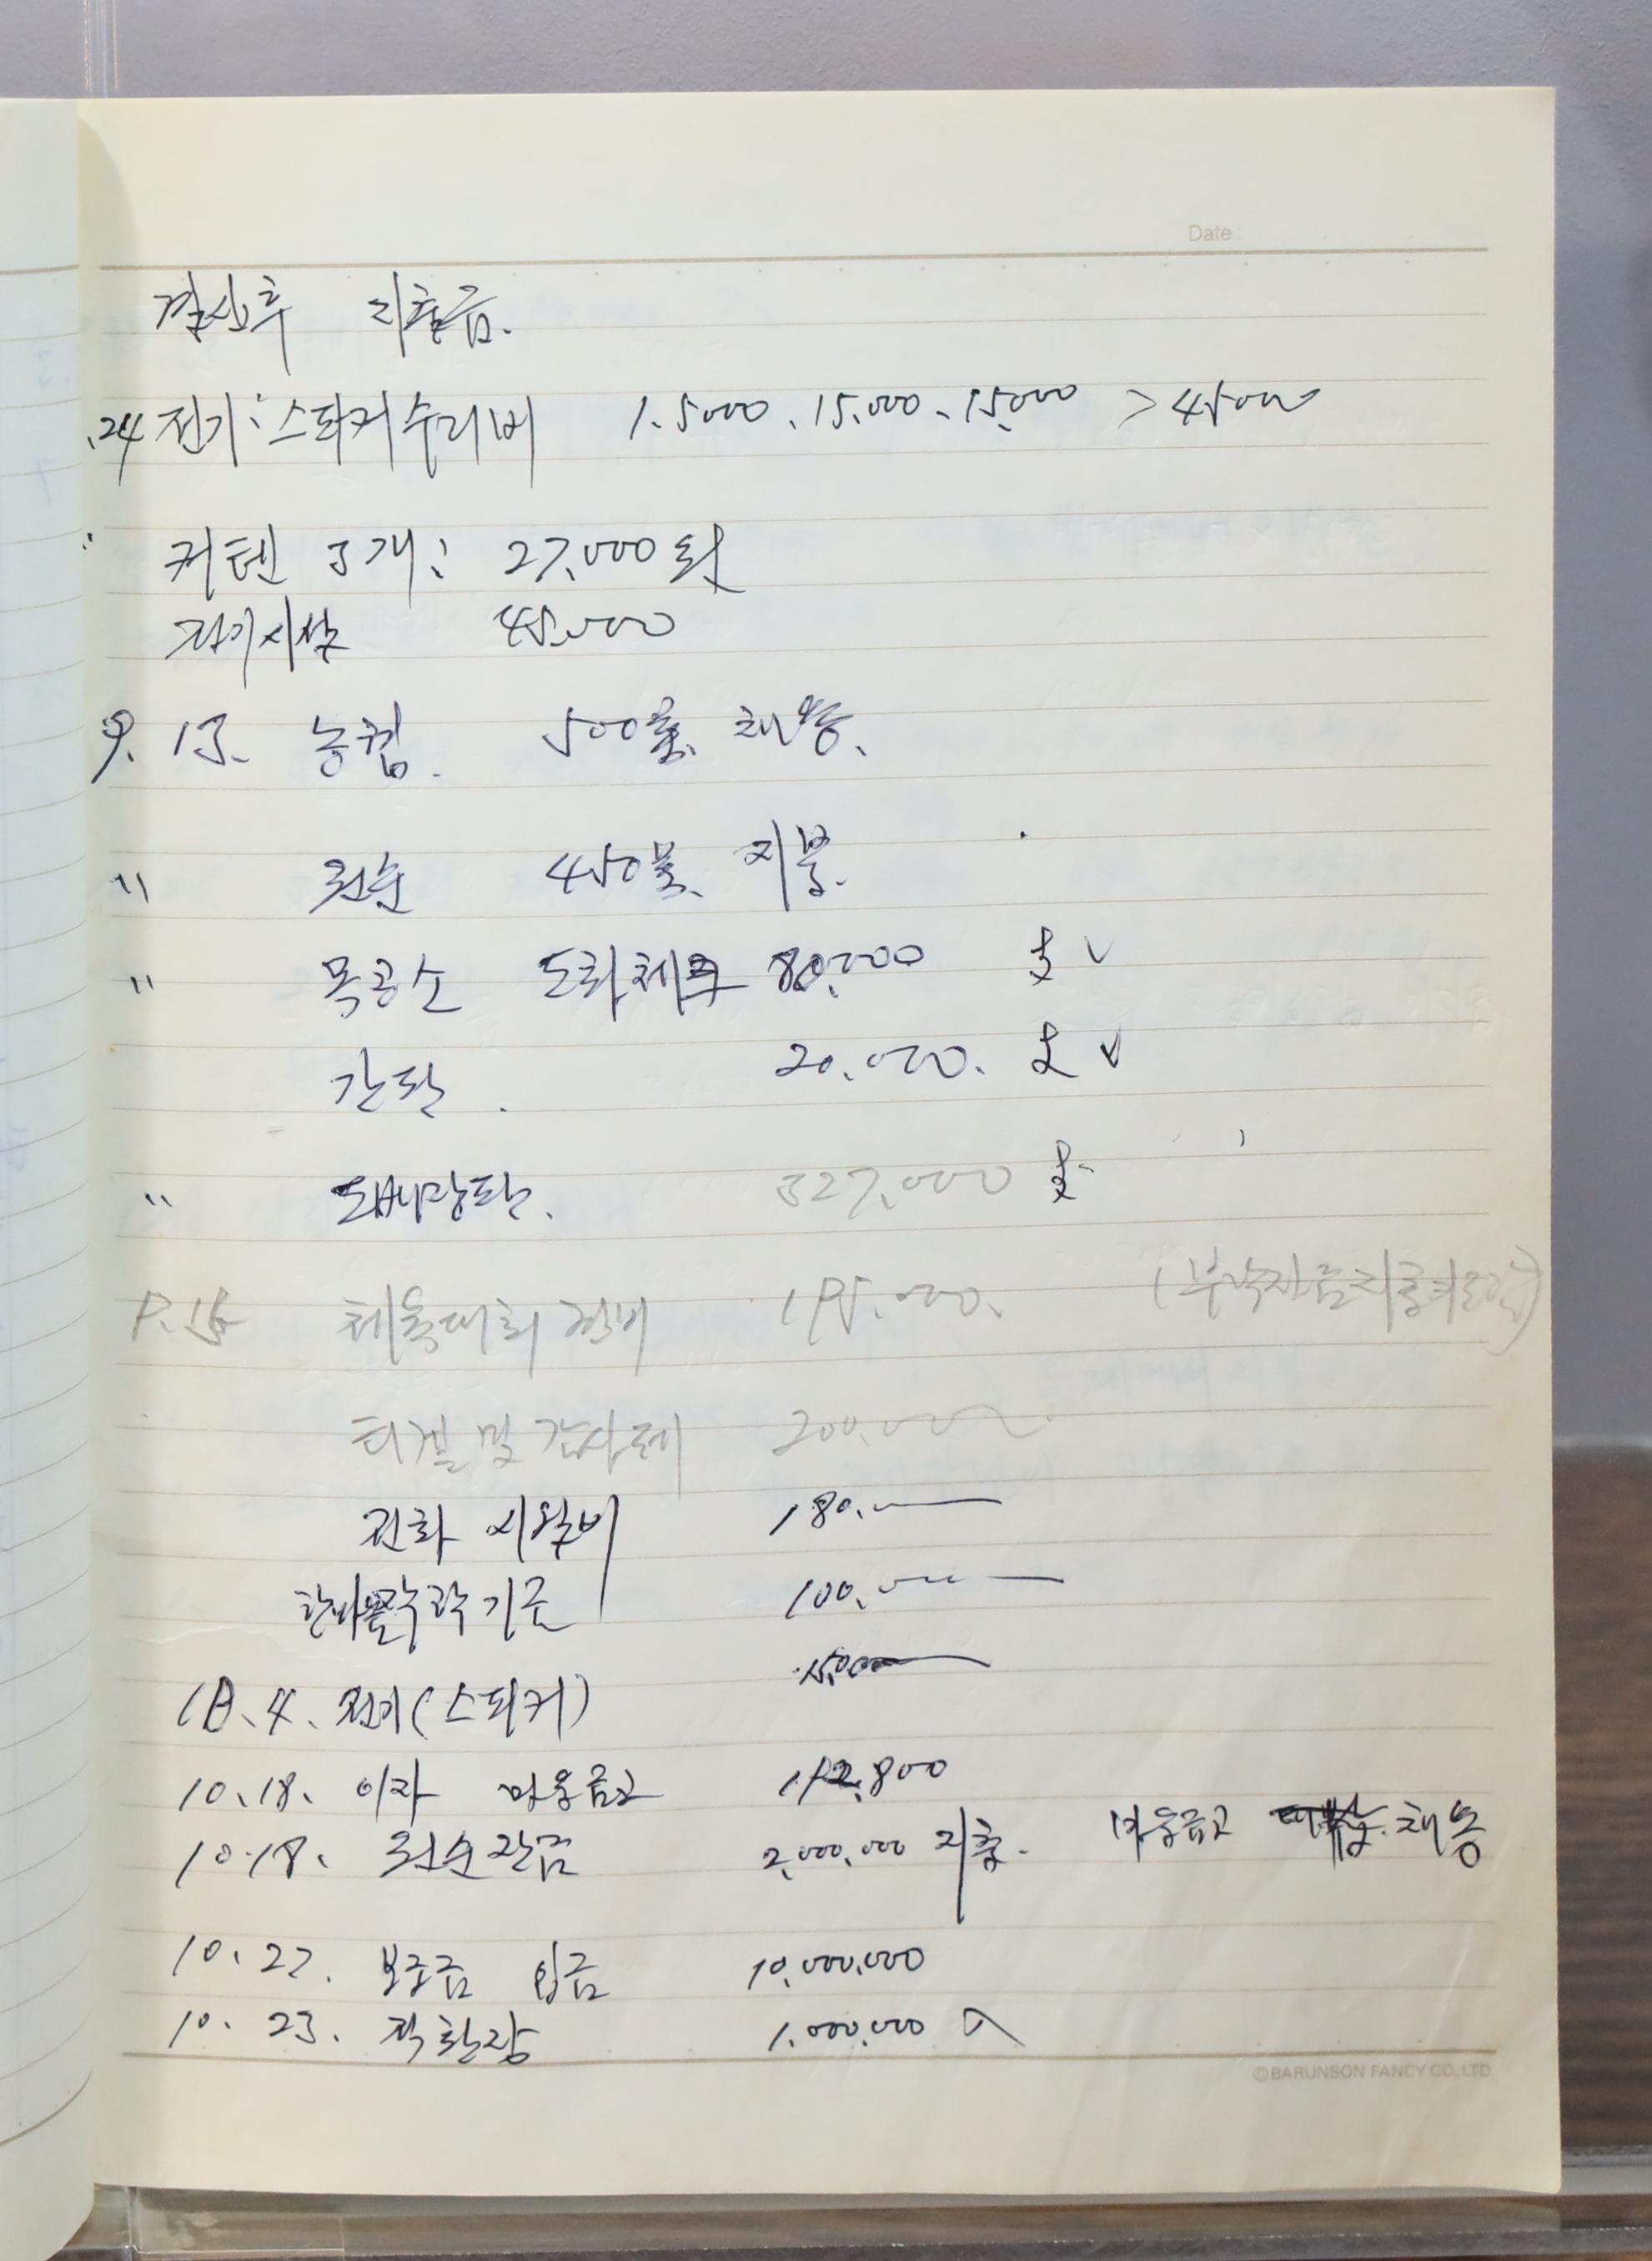 Date :
결산후 지출금.
.24 전기: 스피커수리비 1.5000、15.000、15.000 > 45000
〃 커텐 3개: 27.000 원
전기시설 45.000
9. 13. 농협. 500불、채용、
〃 원순 450불、지불.
〃 목공소 도화체크 80.000 支 ✓
간판. 20.000. 支 ✓
〃 도배장판. 327.000 支
9.15 체육대회 경비 195.000.
티겔 및 감사패 200.000
전화 시설비 180.
기금 100.000
10.4. 전기(스피커) 15.000
10.18. 이자 마을금고 112.800
10.18. 원순잔금 2.000.000 지출. 마을금고 채용
10.22. 보증금 입금 10.000.000
10.23. 적환장 1.000.000 入
©BARUNSON FANCY CO., LTD.